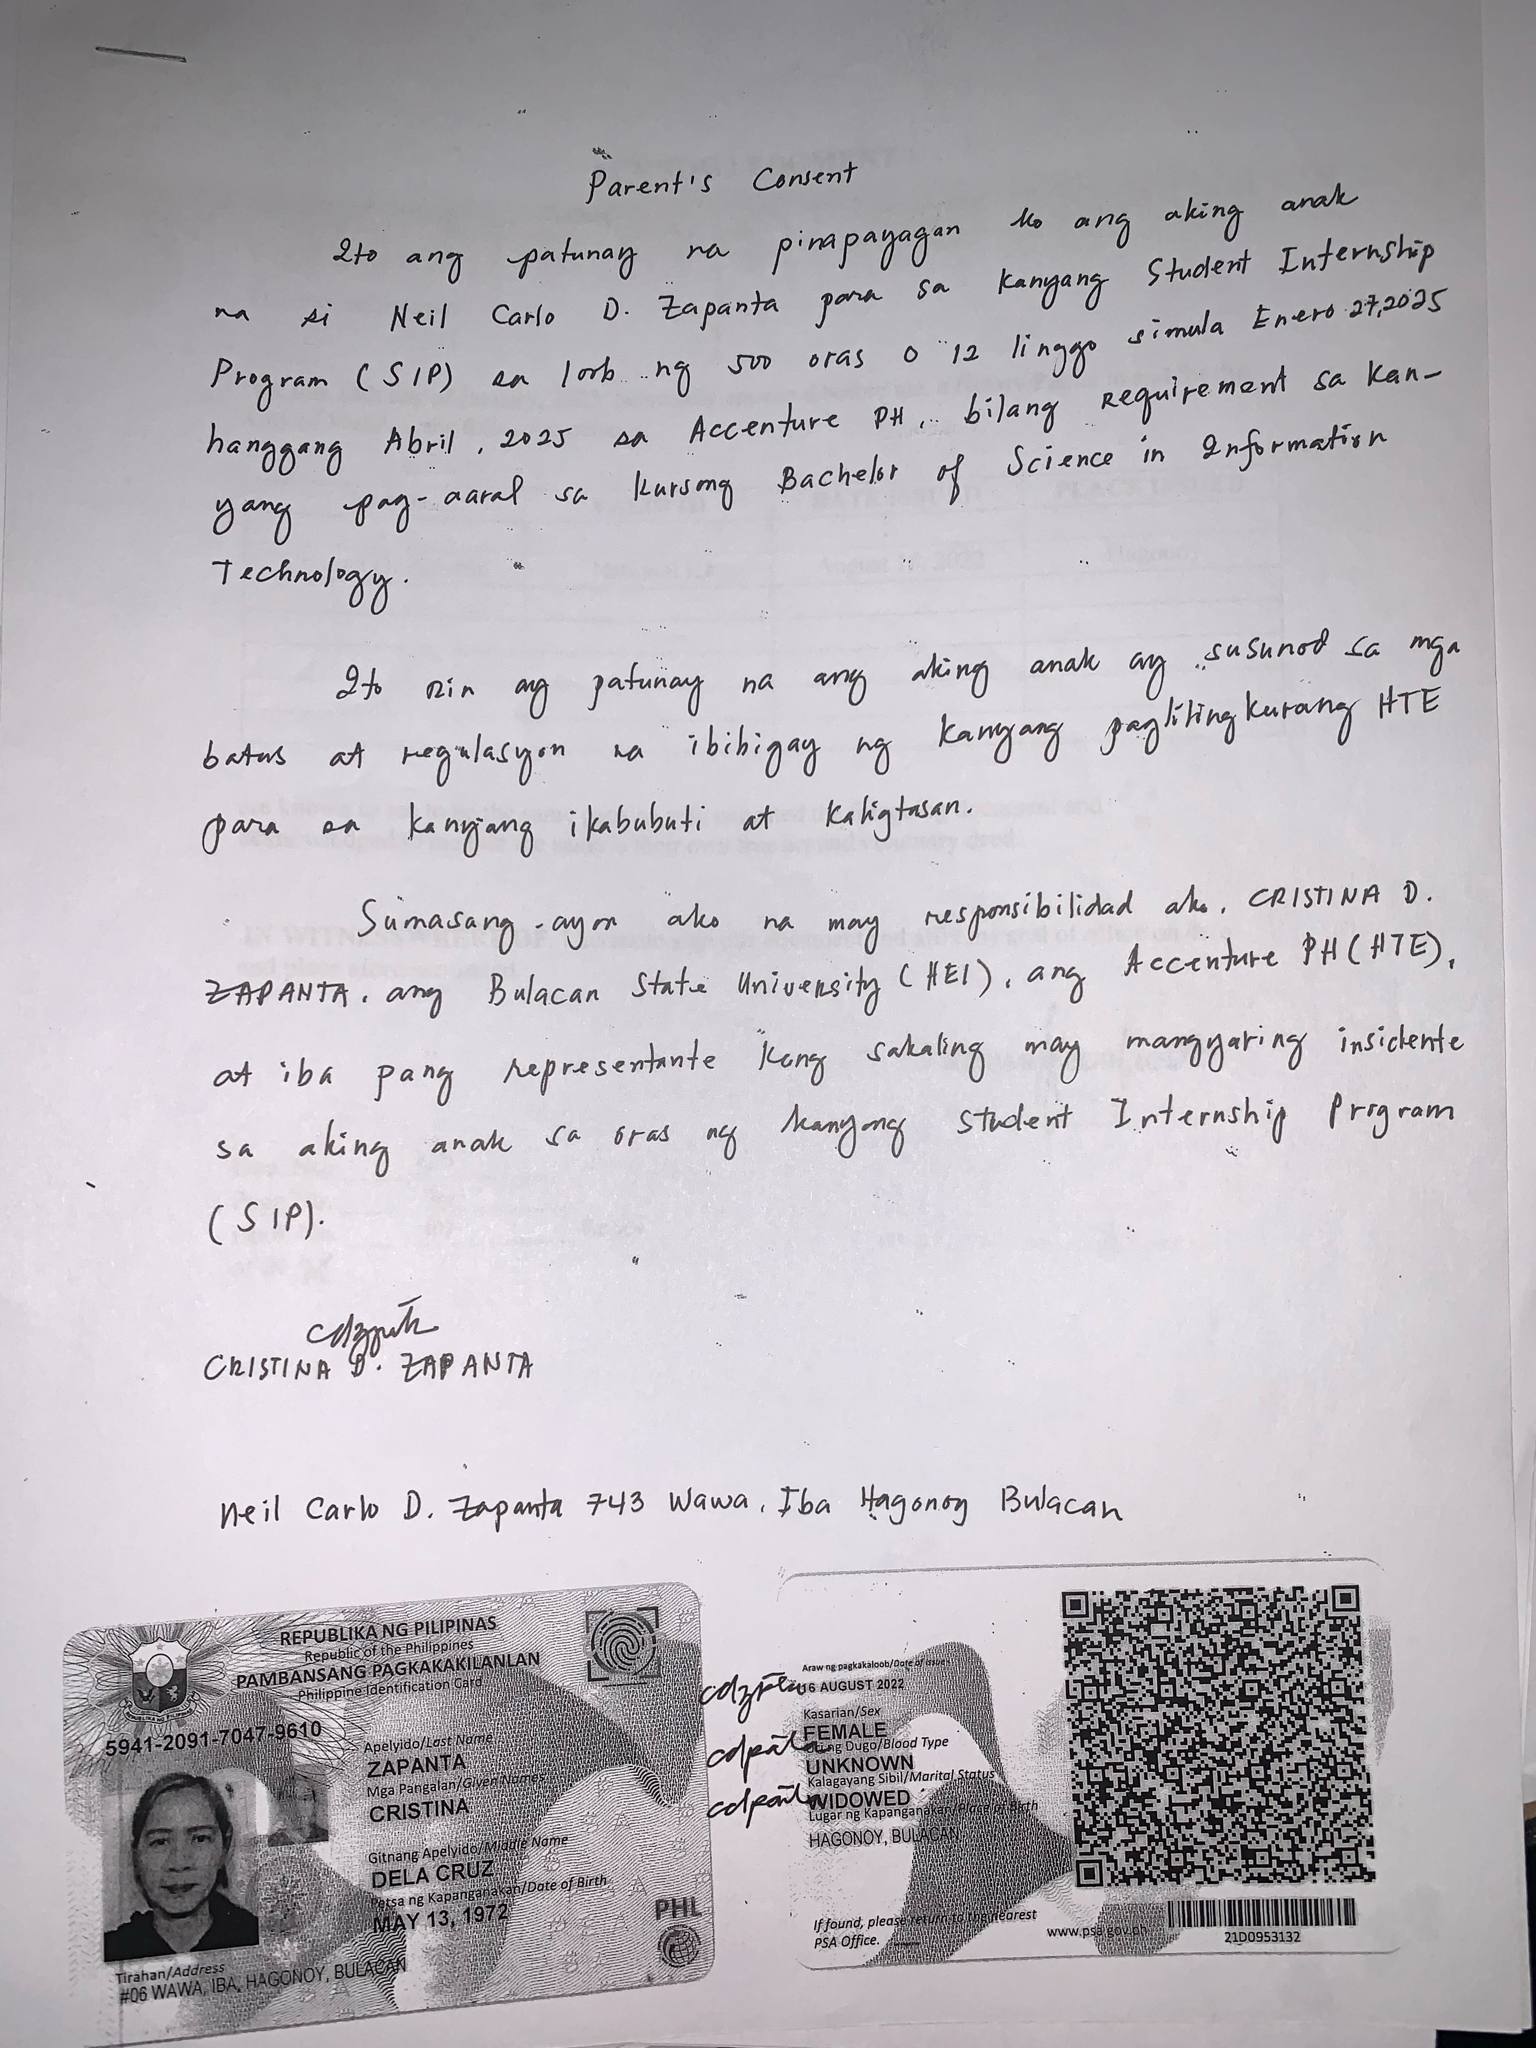 Parent's Consent
Ito ang patunay na pinapayagan ko ang aking anak
na si Neil Carlo D. Zapanta para sa kanyang Student Internship
Program (SIP) sa loob ng 500 oras o 12 linggo simula Enero 27, 2025
hanggang Abril, 2025 sa Accenture PH, bilang requirement sa kan-
yang pag-aaral sa kursong Bachelor of Science in Information
Technology.
Ito rin ay patunay na ang aking anak ay susunod sa mga
batas at regulasyon na ibibigay ng kanyang paglilingkurang HTE
para sa kanyang ikabubuti at kaligtasan.
Sumasang-ayon ako na may responsibilidad ako, CRISTINA D.
ZAPANTA, ang Bulacan State University (HEI), ang Accenture PH (HTE),
at iba pang representante kung sakaling may mangyaring insidente
sa aking anak sa oras ng kanyang Student Internship Program
(SIP).
CRISTINA D. ZAPANTA
Neil Carlo D. Zapanta 743 Wawa, Iba Hagonoy Bulacan
REPUBLIKA NG PILIPINAS
Republic of the Philippines
PAMBANSANG PAGKAKAKILANLAN
Philippine Identification Card
5941-2091-7047-9610
Apelyido/Last Name
ZAPANTA
Mga Pangalan/Given Names
CRISTINA
Gitnang Apelyido/Middle Name
DELA CRUZ
Petsa ng Kapanganakan/Date of Birth
MAY 13, 1972
PHL
Tirahan/Address
#06 WAWA, IBA, HAGONOY, BULACAN
Araw ng pagkakaloob/Date of issue
16 AUGUST 2022
Kasarian/Sex
FEMALE
Uri ng Dugo/Blood Type
UNKNOWN
Kalagayang Sibil/Marital Status
WIDOWED
Lugar ng Kapanganakan/Place of Birth
HAGONOY, BULACAN
If found, please return to the nearest
PSA Office.
www.psa.gov.ph
21D0953132